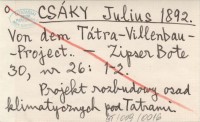 CSÁKY Julius 1892.
Von dem Tátra-Villenbau-
-Project. – Zipser Bote
30, nr 26: 1-2.
Projekt rozbudowy osad
klimatycznych pod Tatrami